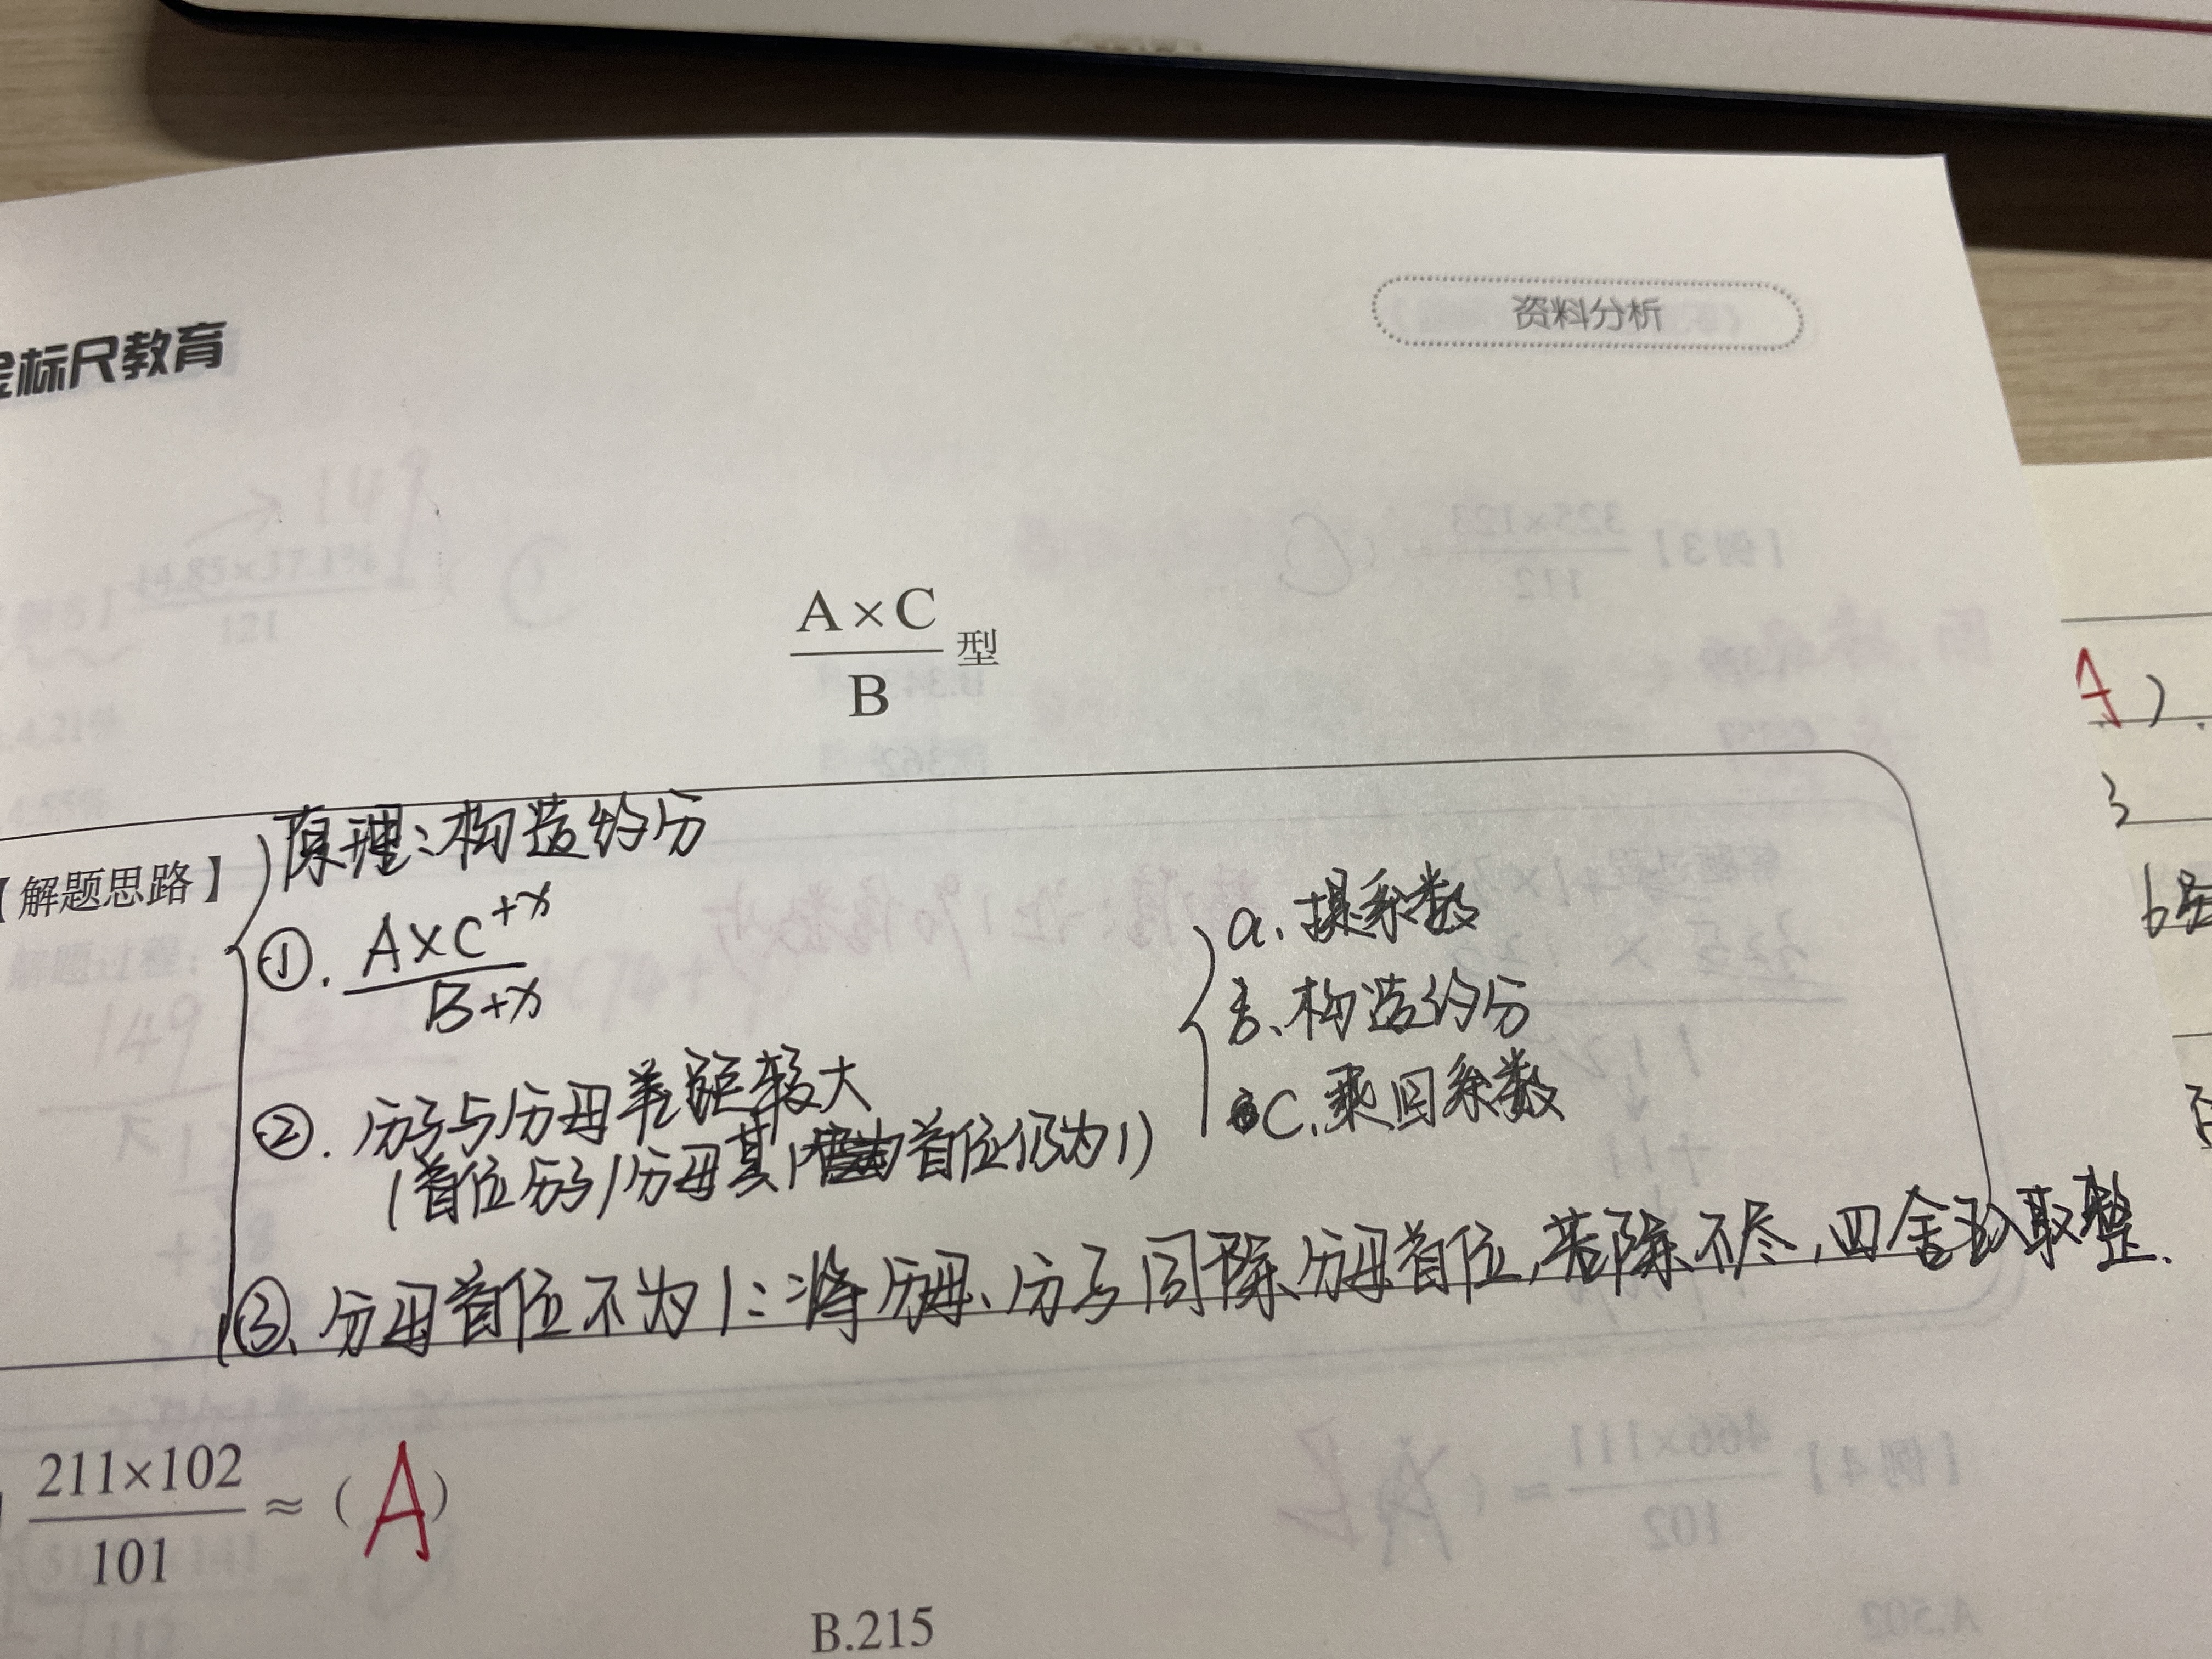 金标尺教育
资料分析
A×C
B
型
【解题思路】
原理:构造约分
①. A×C+x
B+x
②. 分子与分母差距较大
(首位分子/分母其1首位仍为1)
a、提系数
b、构造约分
C、乘回系数
③、分母首位不为1:将分母、分子同除分母首位,若除不尽,四舍五入取整.
211×102
101
≈(A)
B.215
A).
3